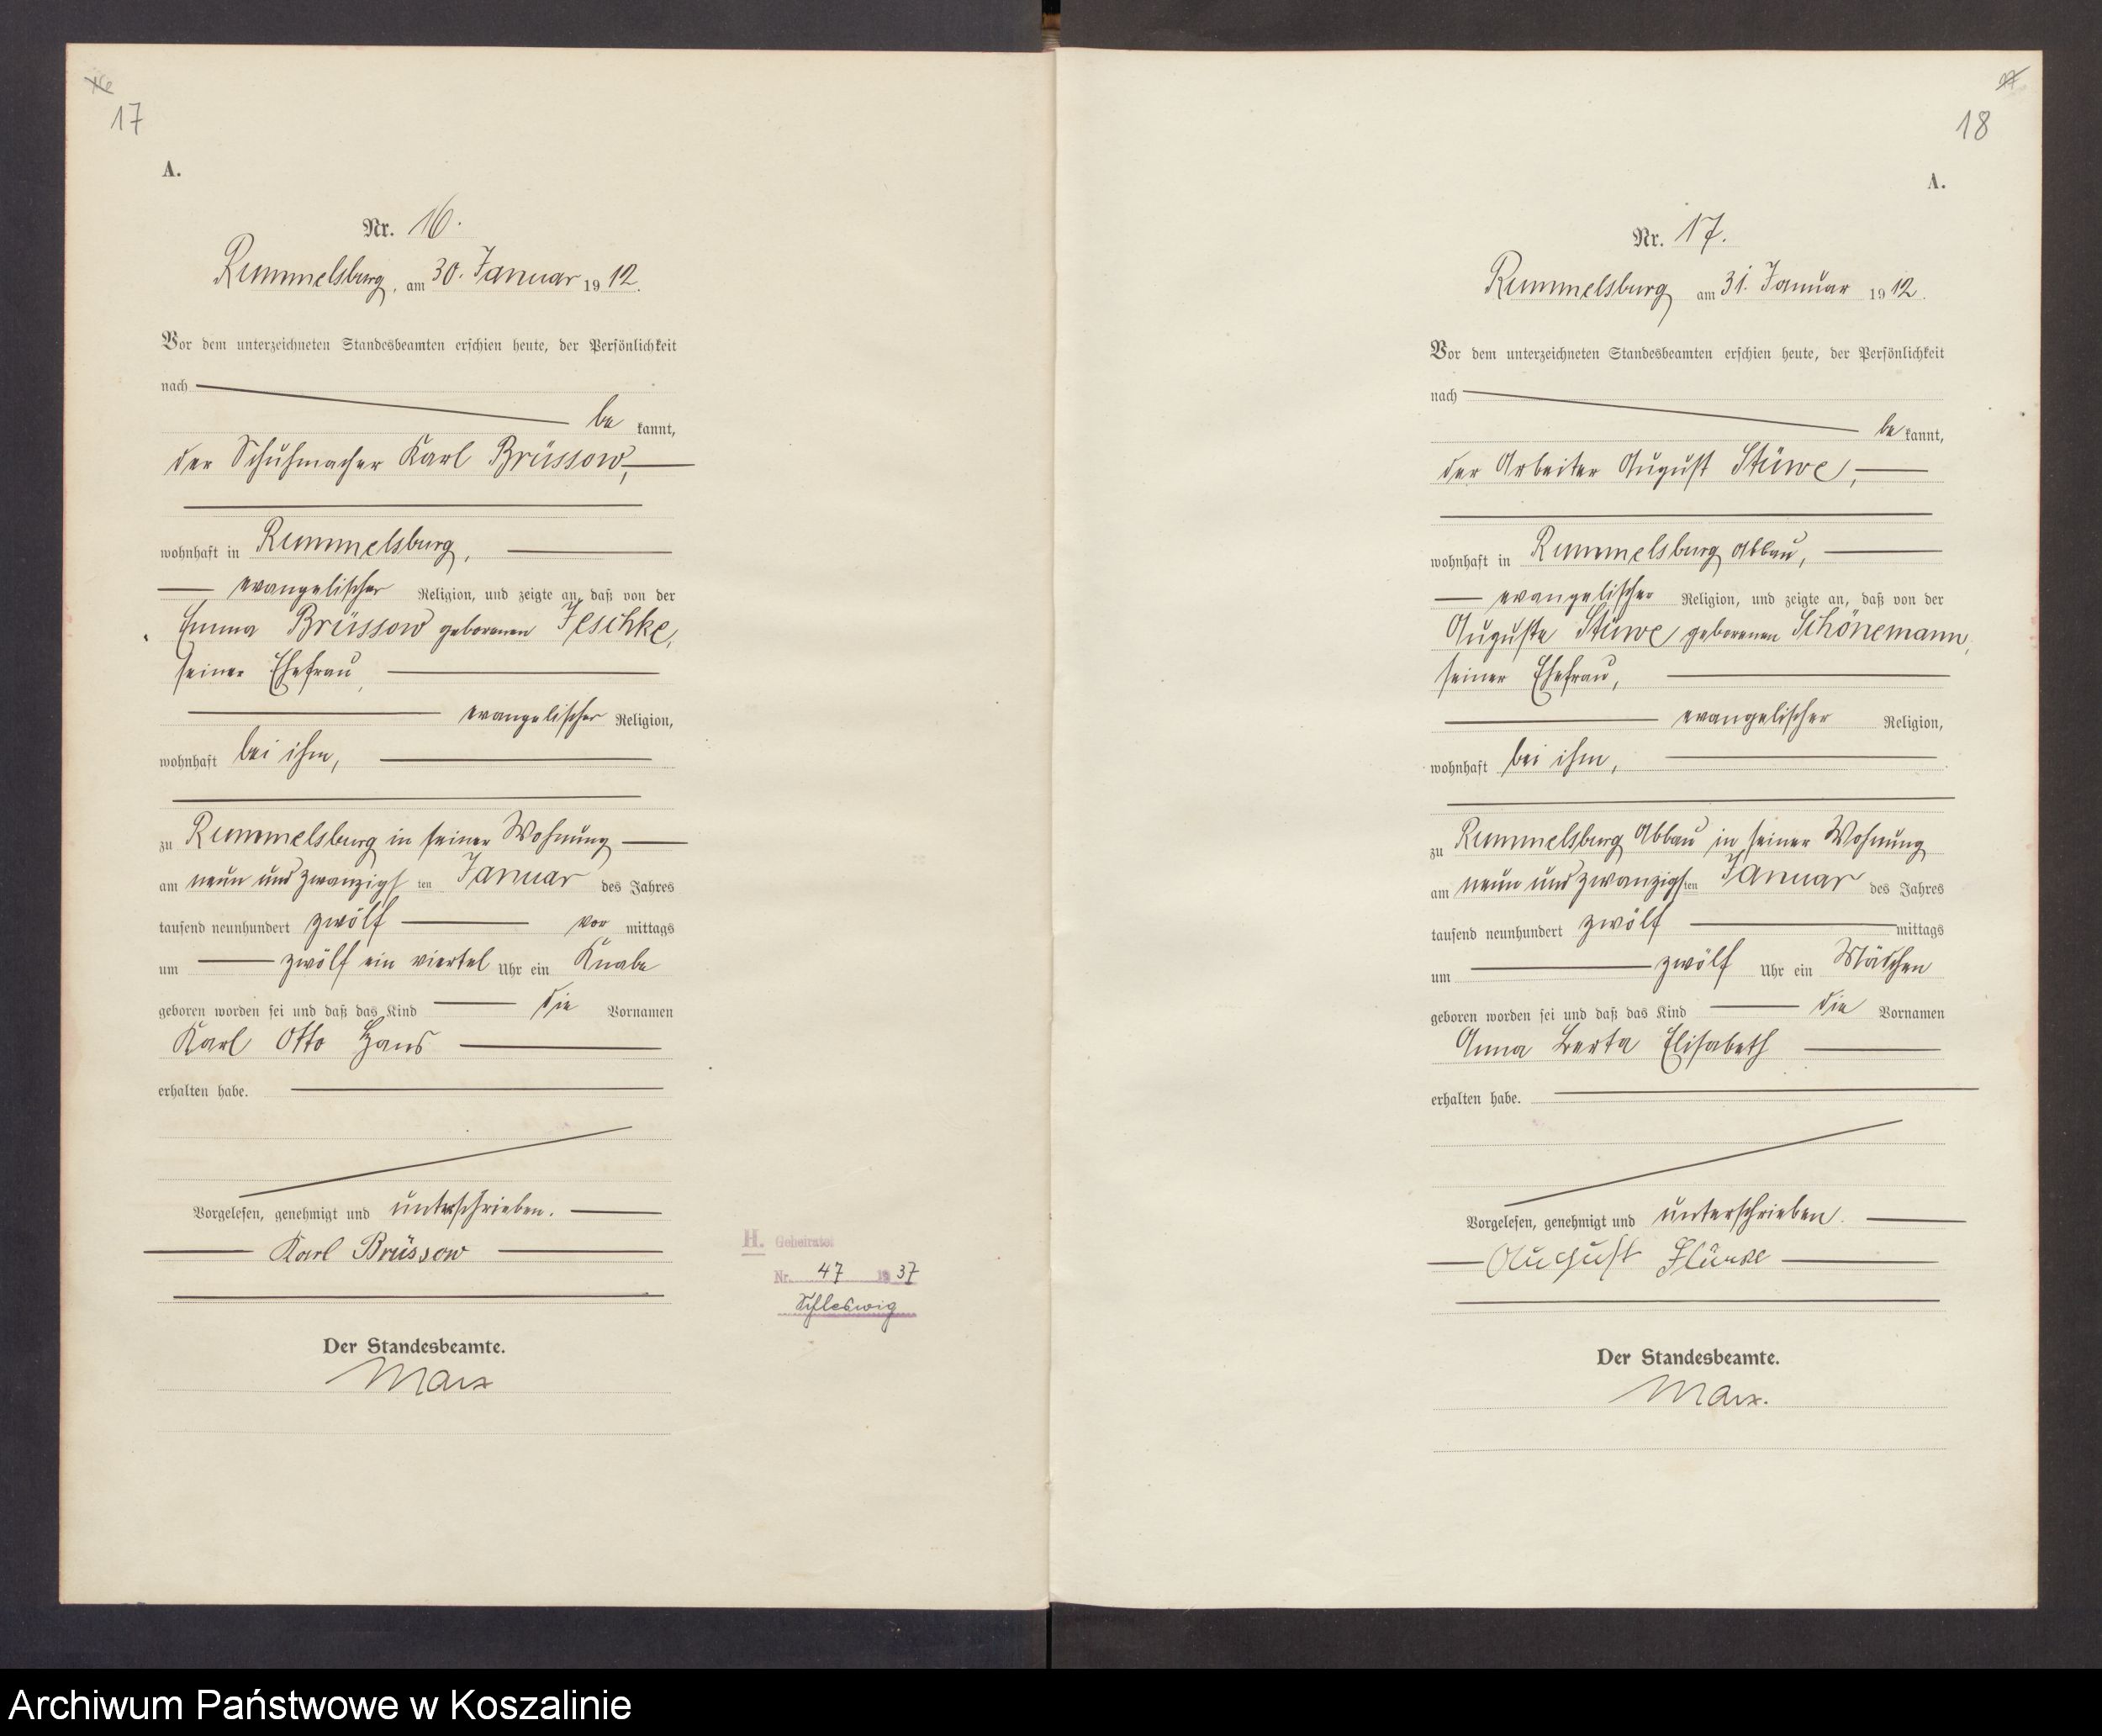 17
A.
Nr. 16.
Rummelsburg, am 30. Januar 1912.
Vor dem unterzeichneten Standesbeamten erschien heute, der Persönlichkeit
nach
be kannt,
der Schuhmacher Karl Brüssow,
wohnhaft in Rummelsburg,
evangelischer Religion, und zeigte an, daß von der
Emma Brüssow geborenen Jeschke,
seiner Ehefrau,
evangelischer Religion,
wohnhaft bei ihm,
zu Rummelsburg in seiner Wohnung
am neun und zwanzigsten Januar des Jahres
tausend neunhundert zwölf vor mittags
um zwölf ein viertel Uhr ein Knabe
geboren worden sei und daß das Kind die Vornamen
Karl Otto Hans
erhalten habe.
Vorgelesen, genehmigt und unterschrieben.
Karl Brüssow
Der Standesbeamte.
Marx
H. Geheiratet
Nr. 47 1937
Schleswig
18
A.
Nr. 17.
Rummelsburg am 31. Januar 1912.
Vor dem unterzeichneten Standesbeamten erschien heute, der Persönlichkeit
nach
be kannt,
der Arbeiter August Stüwe,
wohnhaft in Rummelsburg Abbau,
evangelischer Religion, und zeigte an, daß von der
Auguste Stüwe geborenen Schönemann,
seiner Ehefrau,
evangelischer Religion,
wohnhaft bei ihm,
zu Rummelsburg Abbau in seiner Wohnung
am neun und zwanzigsten Januar des Jahres
tausend neunhundert zwölf mittags
um zwölf Uhr ein Mädchen
geboren worden sei und daß das Kind die Vornamen
Anna Berta Elisabeth
erhalten habe.
Vorgelesen, genehmigt und unterschrieben.
August Stüwe
Der Standesbeamte.
Marx.
Archiwum Państwowe w Koszalinie